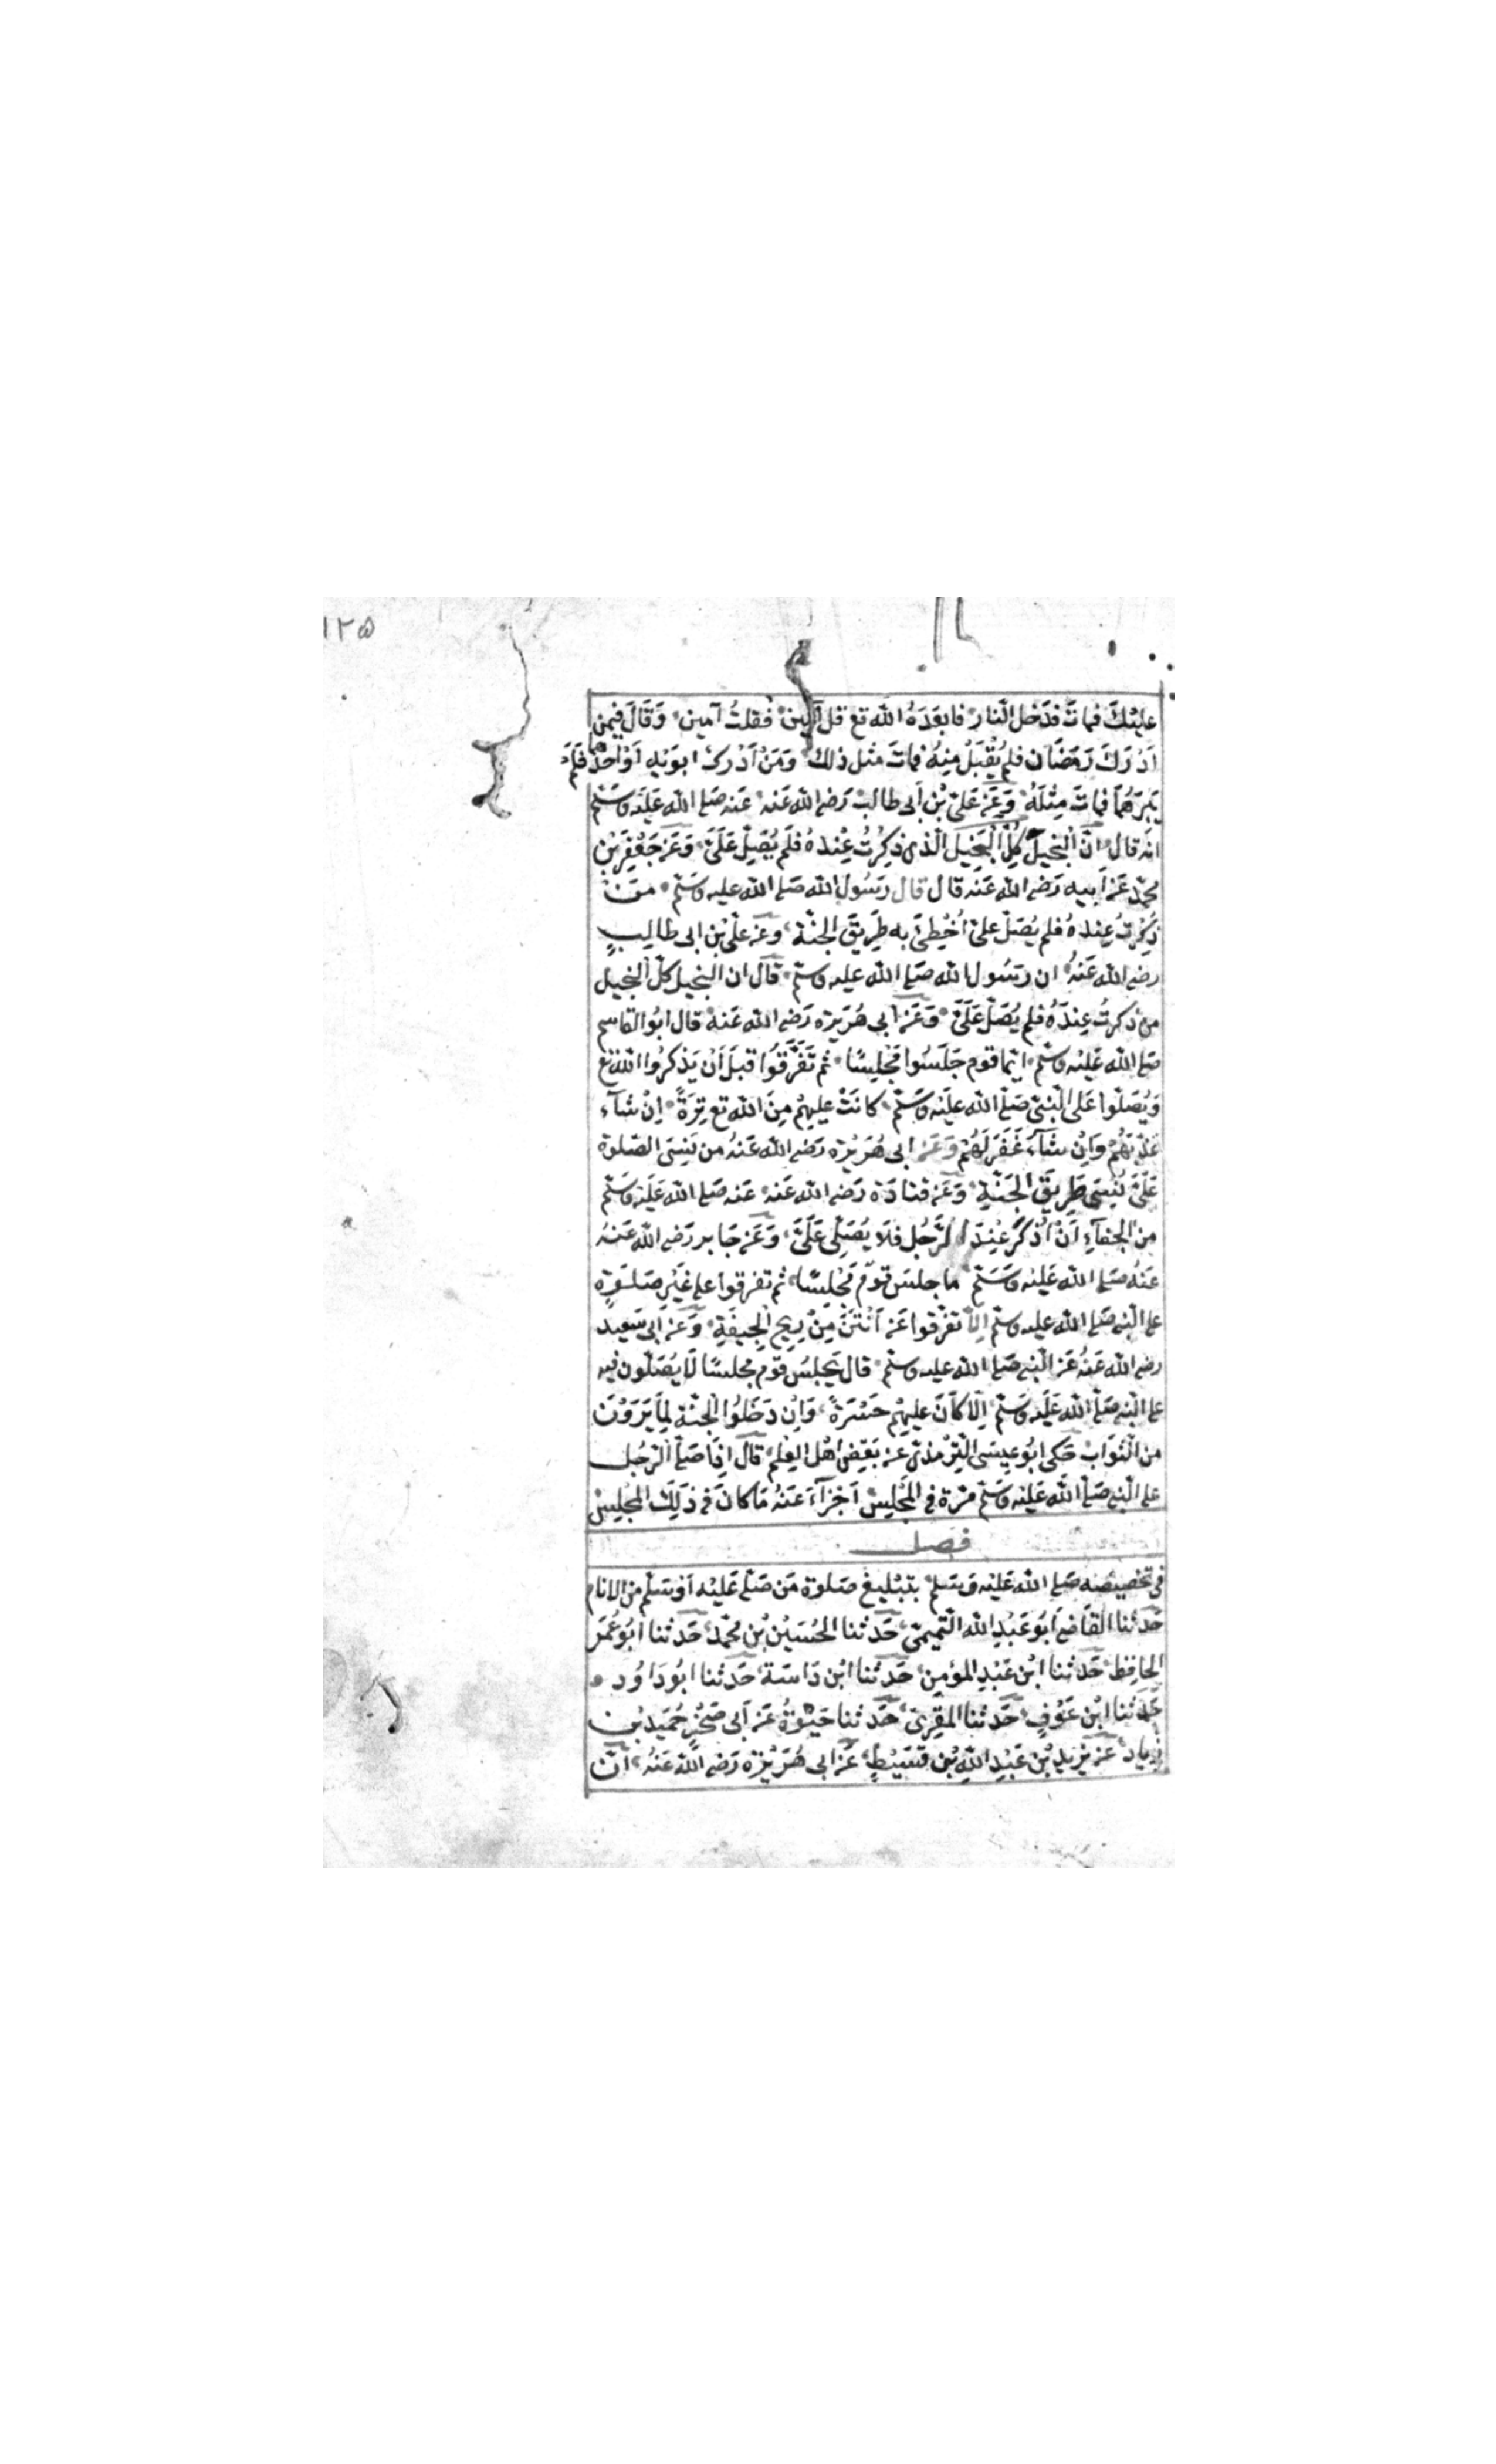 ١٢٥
عليْكَ فماتَ فدَخل النّار فابعَدَهُ الله تع قل آمين فقلتُ آمين وَقَالَ فيمن
اَدْرَكَ رَمَضَان فلم يُقْبَلْ مِنهُ فماتَ مثل ذلك وَمَنْ اَدْرك ابوَيْهِ اَوْ احدهما فلَمْ
يَبَرَّهُمَا فماتَ مِثْلَهُ وَعَن عَلِىّ بْن اَبى طالب رَضى الله عَنه عَنه صَلى الله عَلَيه وَسَلّم
انه قال اِنَّ الْبَخِيلَ كُلَّ الْبَخِيلِ الّذى ذُكِرْتُ عِنْدَهُ فلَم يُصَلِّ عَلَىَّ وَعَن جَعْفَرِ بْنِ
محمّد عَن اَبيه رَضى الله عَنه قال قال رَسُول الله صَلى الله عليه وسَلّم مَنْ
ذُكِرْتُ عِنده فلم يُصَلّ علىّ اُخْطِئَ به طَرِيقَ الجنّة وعن علىّ بْن ابى طالِبٍ
رضى الله عَنهُ ان رسَول الله صَلى الله عليه وسلّم قَالَ ان البخيل كلّ البخيل
من ذكرتُ عِندَهُ فلم يُصَلّ عَلَىَّ وَعَن اَبى هُرَيره رَضى الله عَنهُ قال ابُو القاسِم
صَلى الله عَليْه وسَلّم ايّما قوم جَلَسُوا مَجْلِسًا ثم تَفَرَّقوُا قبلَ اَنْ يَذكرُوا الله تع
وَيُصَلّوا عَلى النّبىّ صَلّى الله علَيْه وسَلّم كانَتْ عليهِمْ مِنَ الله تع تِرَةً اِنْ شآء
عَذّبَهُمْ وَاِنْ شآءَ غَفَرَ لَهُمْ وَعَن ابى هُرَيْره رَضى الله عَنهُ من نَسِىَ الصّلوة
عَلَىَّ نُسِىَ طَرِيقَ الْجَنّةِ وَعَن قتادَة رَضى الله عَنه عَنه صَلى الله عَلَيْه وسَلّم
من الجفآءِ اَنْ اُذكَرَ عِنْدَ الرَّجُل فَلَا يُصَلّى عَلَىَّ وَعَن جَابر رَضى الله عَنهُ
عَنهُ صَلى الله عَليْه وَسَلّم ما جلسَ قوم مَجْلسًا ثم تفرقوا على غَيْرِ صَلوةٍ
على النّبى صَلى الله عليه وسلّم اِلّا تفرّقوا عَن اَنْتَنَ مِنْ رِيحِ الجِيفَةِ وَعَن اَبى سَعِيد
رضى الله عَنهُ عَن النّبى صَلى الله عليه وسلّم قال يَجلِسُ قوم مجلسًا لَا يُصَلّون فيه
على النّبى صَلّى الله عَلَيه وسَلّم اِلّا كَانَ عليهِمْ حَسْرَةً وَاِنْ دَخَلُوا الْجنّة لِمَا يَرَوْنَ
من الثّوَاب حَكى ابُو عِيسَى التّرمذىّ عن بَعْضِ اهْل العِلم قال اِذَا صَلّى الرّجُل
على النّبى صَلّى الله عَليْه وسَلّم مَرّة فى المَجْلِسِ اَجْزَأَ عَنهُ مَا كانَ فى ذلِكَ الْمَجْلِسِ
فصل
فى تخصيصه صَلى الله عَلَيْه وَسَلم بتَبْليغ صَلوة مَن صَلّى عَلَيْه اَوْ سَلّم من الانام
حَدثنا القَاضى اَبُو عَبْدِ الله التّميمىّ حَدثنا الحُسَيْن بْن محمّد حَدثنا ابُو عُمَرَ
الحافِظ حَدثنا ابْن عَبْدِ المؤمن حَدثنا ابْن دَاسَة حَدثنا ابُو دَاوُد
حَدثنا ابْن عَوْفٍ حَدثنا المقرِئ حَدثنا حَيْوَةُ عَن اَبى صَخْرٍ حُمَيْد بْن
زياد عن يَزيد بْن عَبْدِ اللهِ بْن قسَيْطٍ عَن ابى هُرَيْرَه رَضى الله عَنهُ انّ